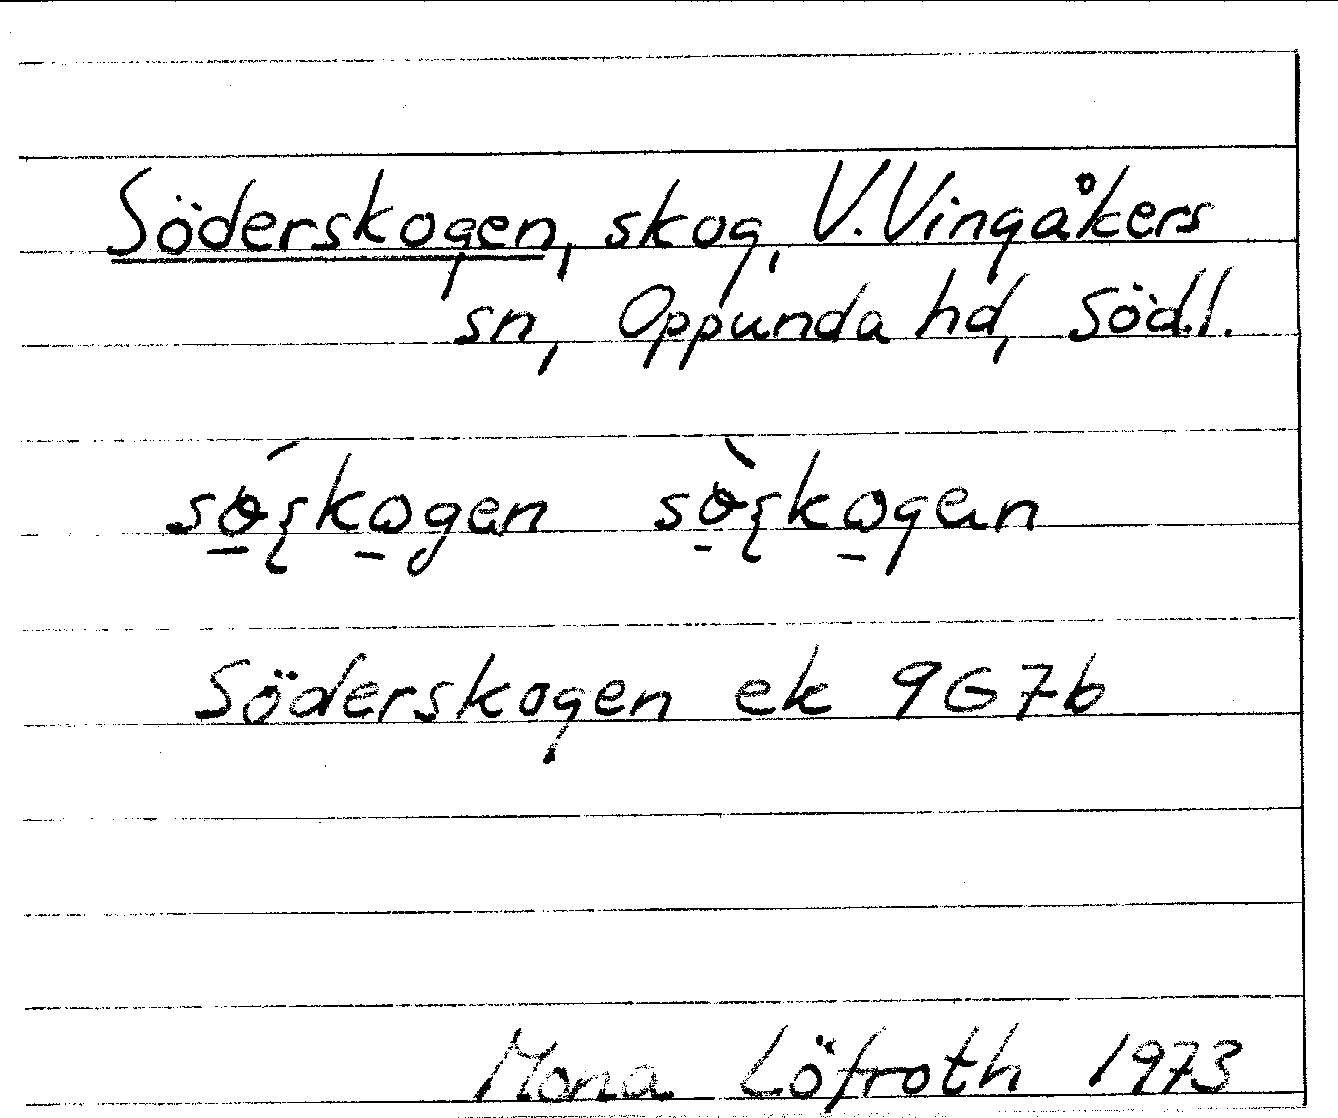 Söderskogen, skog, V. Vingåkers
sn, Oppunda hd, Söd.l.
sǿ̱ʂko̱gen sø̱̀ʂko̱gen
Söderskogen ek 9G7b
Mona Löfroth 1973